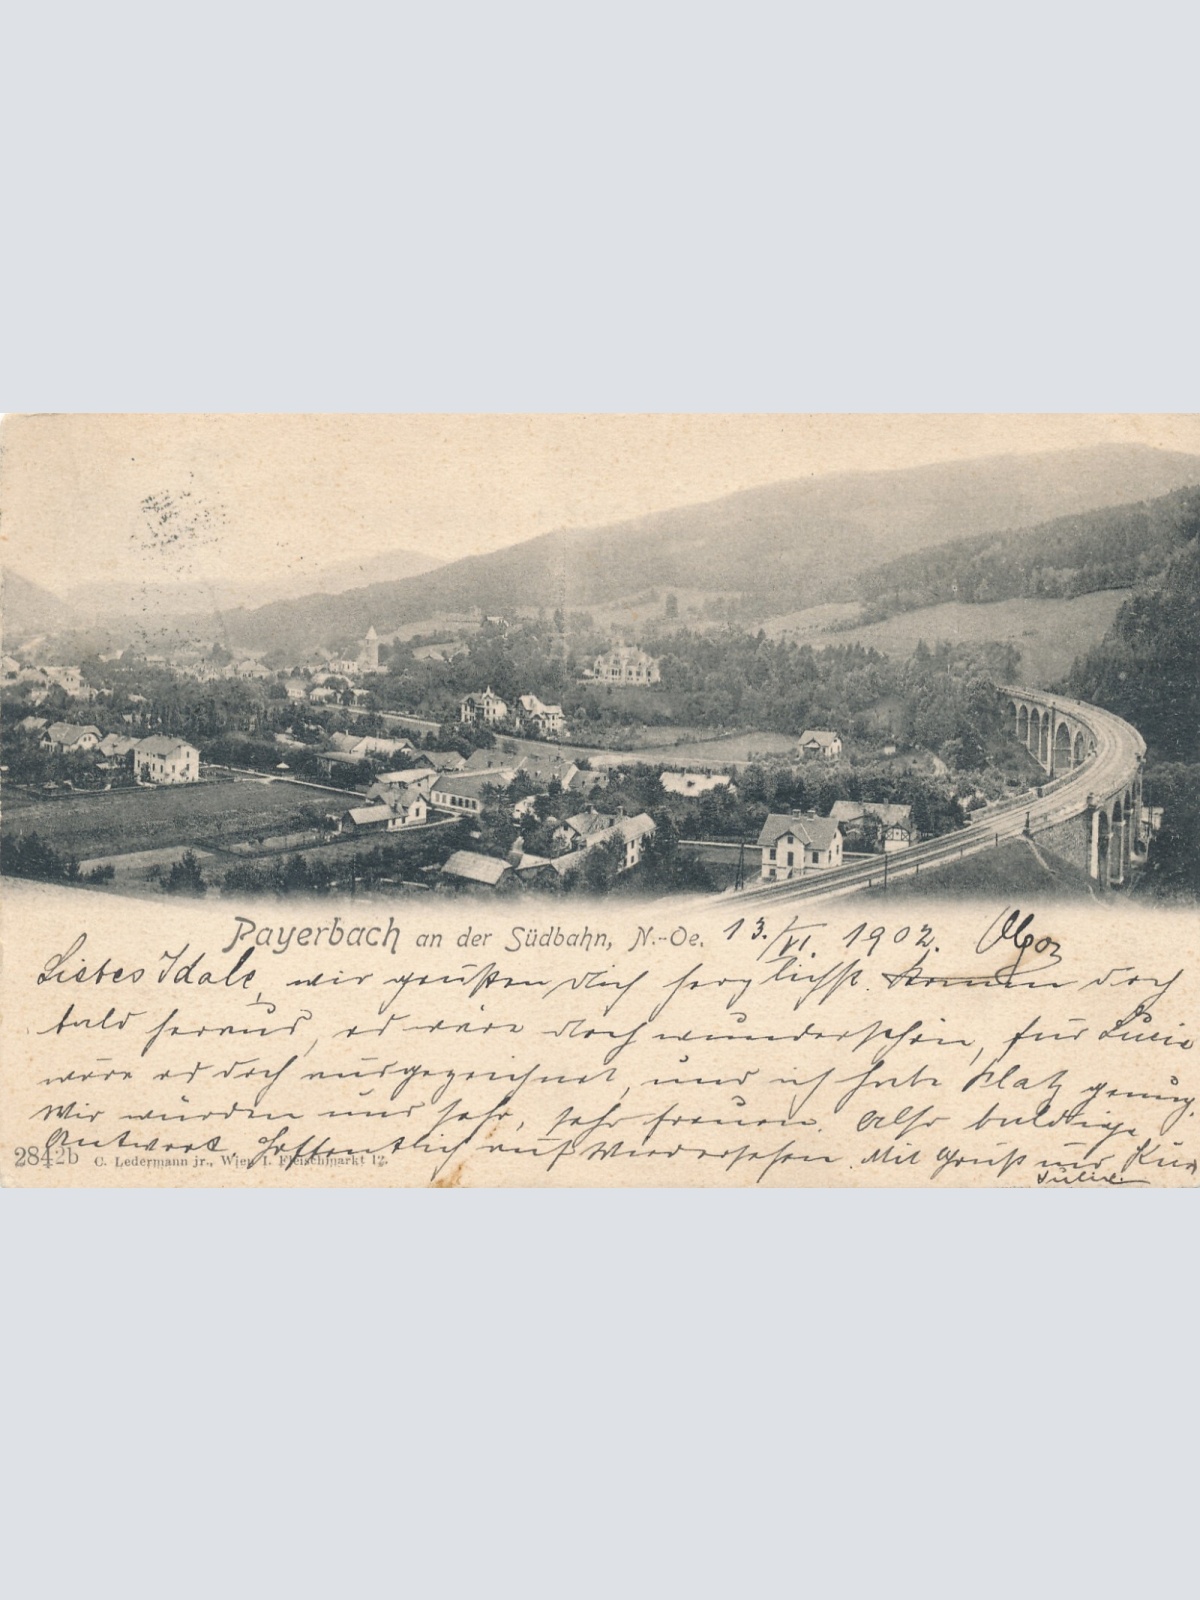 Payerbach an der Südbahn, N.-Oe. 13./VI. 1902. Olga
Liebes Idale, wir grüßen dich herzlichst. Komm doch
bald heraus, es wäre doch wunderschön, für Lucie
wäre es doch ausgezeichnet, und ich habe Platz genug.
Wir würden uns sehr, sehr freuen. Also baldige
Antwort. Hoffentlich auf Wiedersehen. Mit Gruß und Kuß
2842b C. Ledermann jr., Wien I. Fleischmarkt 12.
Julie